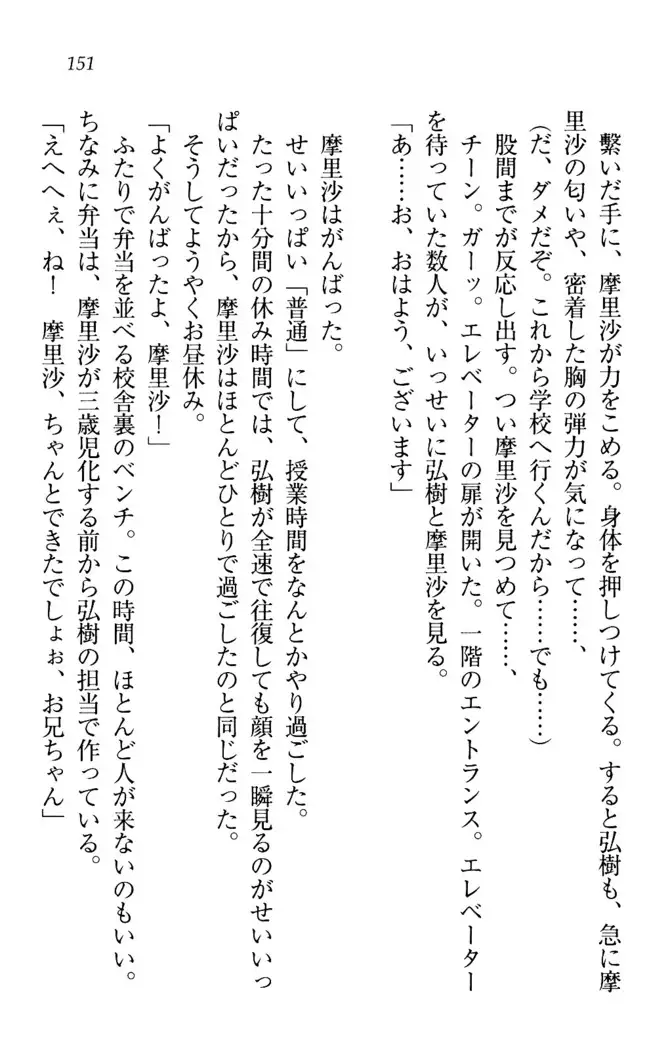 151
繋いだ手に、摩里沙が力をこめる。身体を押しつけてくる。すると弘樹も、急に摩
里沙の匂いや、密着した胸の弾力が気になって……、
(だ、ダメだぞ。これから学校へ行くんだから……でも……)
股間までが反応し出す。つい摩里沙を見つめて……、
チーン。ガーッ。エレベーターの扉が開いた。一階のエントランス。エレベーター
を待っていた数人が、いっせいに弘樹と摩里沙を見る。
「あ……お、おはよう、ございます」
摩里沙はがんばった。
せいいっぱい「普通」にして、授業時間をなんとかやり過ごした。
たった十分間の休み時間では、弘樹が全速で往復しても顔を一瞬見るのがせいいっ
ぱいだったから、摩里沙はほとんどひとりで過ごしたのと同じだった。
そうしてようやくお昼休み。
「よくがんばったよ、摩里沙!」
ふたりで弁当を並べる校舎裏のベンチ。この時間、ほとんど人が来ないのもいい。
ちなみに弁当は、摩里沙が三歳児化する前から弘樹の担当で作っている。
「えへへぇ、ね! 摩里沙、ちゃんとできたでしょぉ、お兄ちゃん」